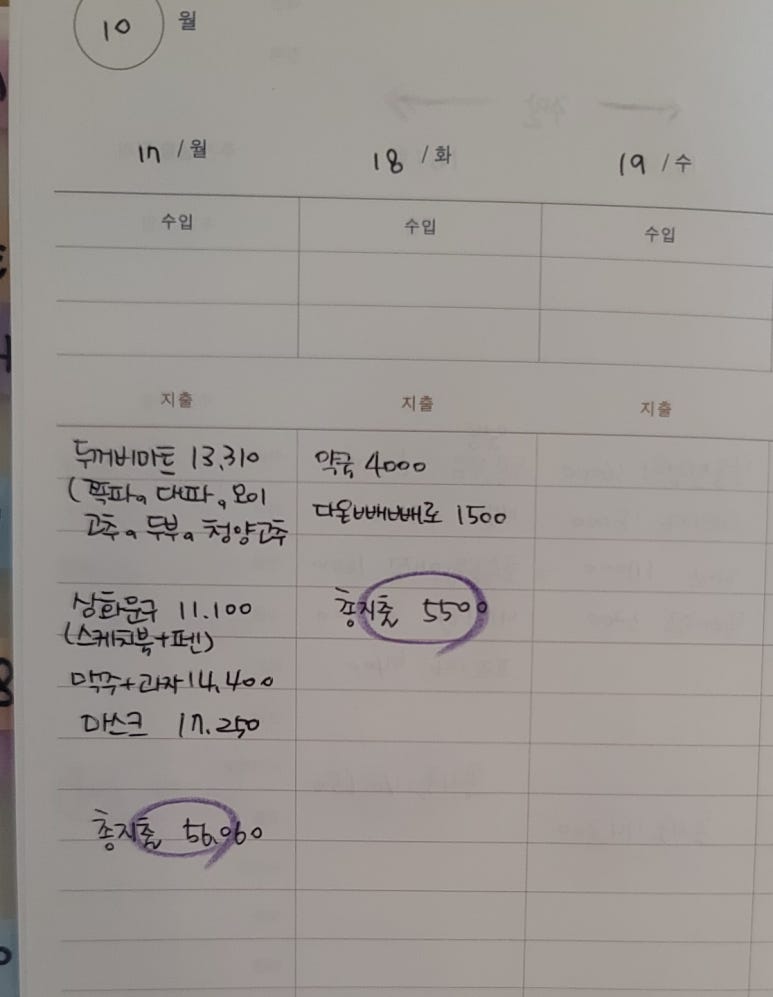 10 월
17 / 월
18 / 화
19 / 수
수입
수입
수입
지출
지출
지출
두꺼비마트 13,310
(쪽파, 대파, 오이
고추, 두부, 청양고추
상화문구 11.100
(스케치북+펜)
맥주+과자 14,400
마스크 17.250
총지출 56,060
약국 4000
다온빼빼로 1500
총지출 5500